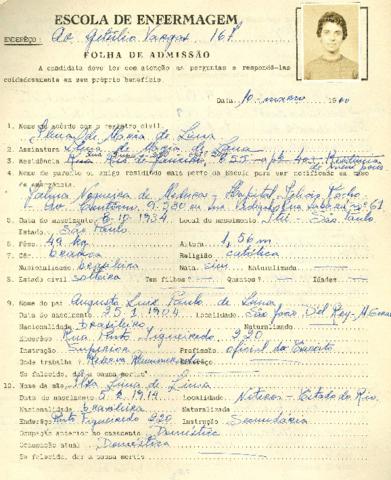 ESCOLA DE ENFERMAGEM
ENDEREÇO: Av Getúlio Vargas 167
FOLHA DE ADMISSÃO
A candidata deve ler com atenção as perguntas e respondê-las
cuidadosamente em seu próprio benefício.
Data, 10 março 1960
1. Nome de acordo com o registro civil.
de Maria de Lima
2. Assinatura de Maria de Lima
3. Residência Rua Rio de Janeiro, 655 - apt 403
4. Nome do parente ou amigo residindo mais perto da Escola para ser notificado em caso
de emergência.
Nogueira de Medeiros - Hospital Felicio Rocho
5. Data do nascimento 1934 Local do nascimento São Paulo
Estado. São Paulo
6. Pêso: 49 kg Altura: 1,56 m
7. Côr: branca Religião católica
Nacionalidade brasileira Nata sim Naturalizada
8. Estado civil solteira Tem filhos? Quantos? Idades
9. Nome do pai Augusto Luiz Paulo de Lima
Data do nascimento 25.1.1904 Localidade. São João Del Rey - M. Gerais
Nacionalidade brasileiro Naturalizado
Enderêço Rua Porto Figueiredo 220
Instrução Superior Profissão oficial do Exército
Onde trabalha Reserva Remunerada
Se falecido, dê a causa morte
10. Nome da mãe Lima de Lima
Data do nascimento 5. 2. 1914 Localidade, Niteroi - Estado do Rio
Nacionalidade brasileira Naturalizada
Enderêço Porto Figueiredo 220 Instrução Secundária
Ocupação anterior ao casamento Doméstica
Ocupação atual Doméstica
Se falecida, dar a causa mortis